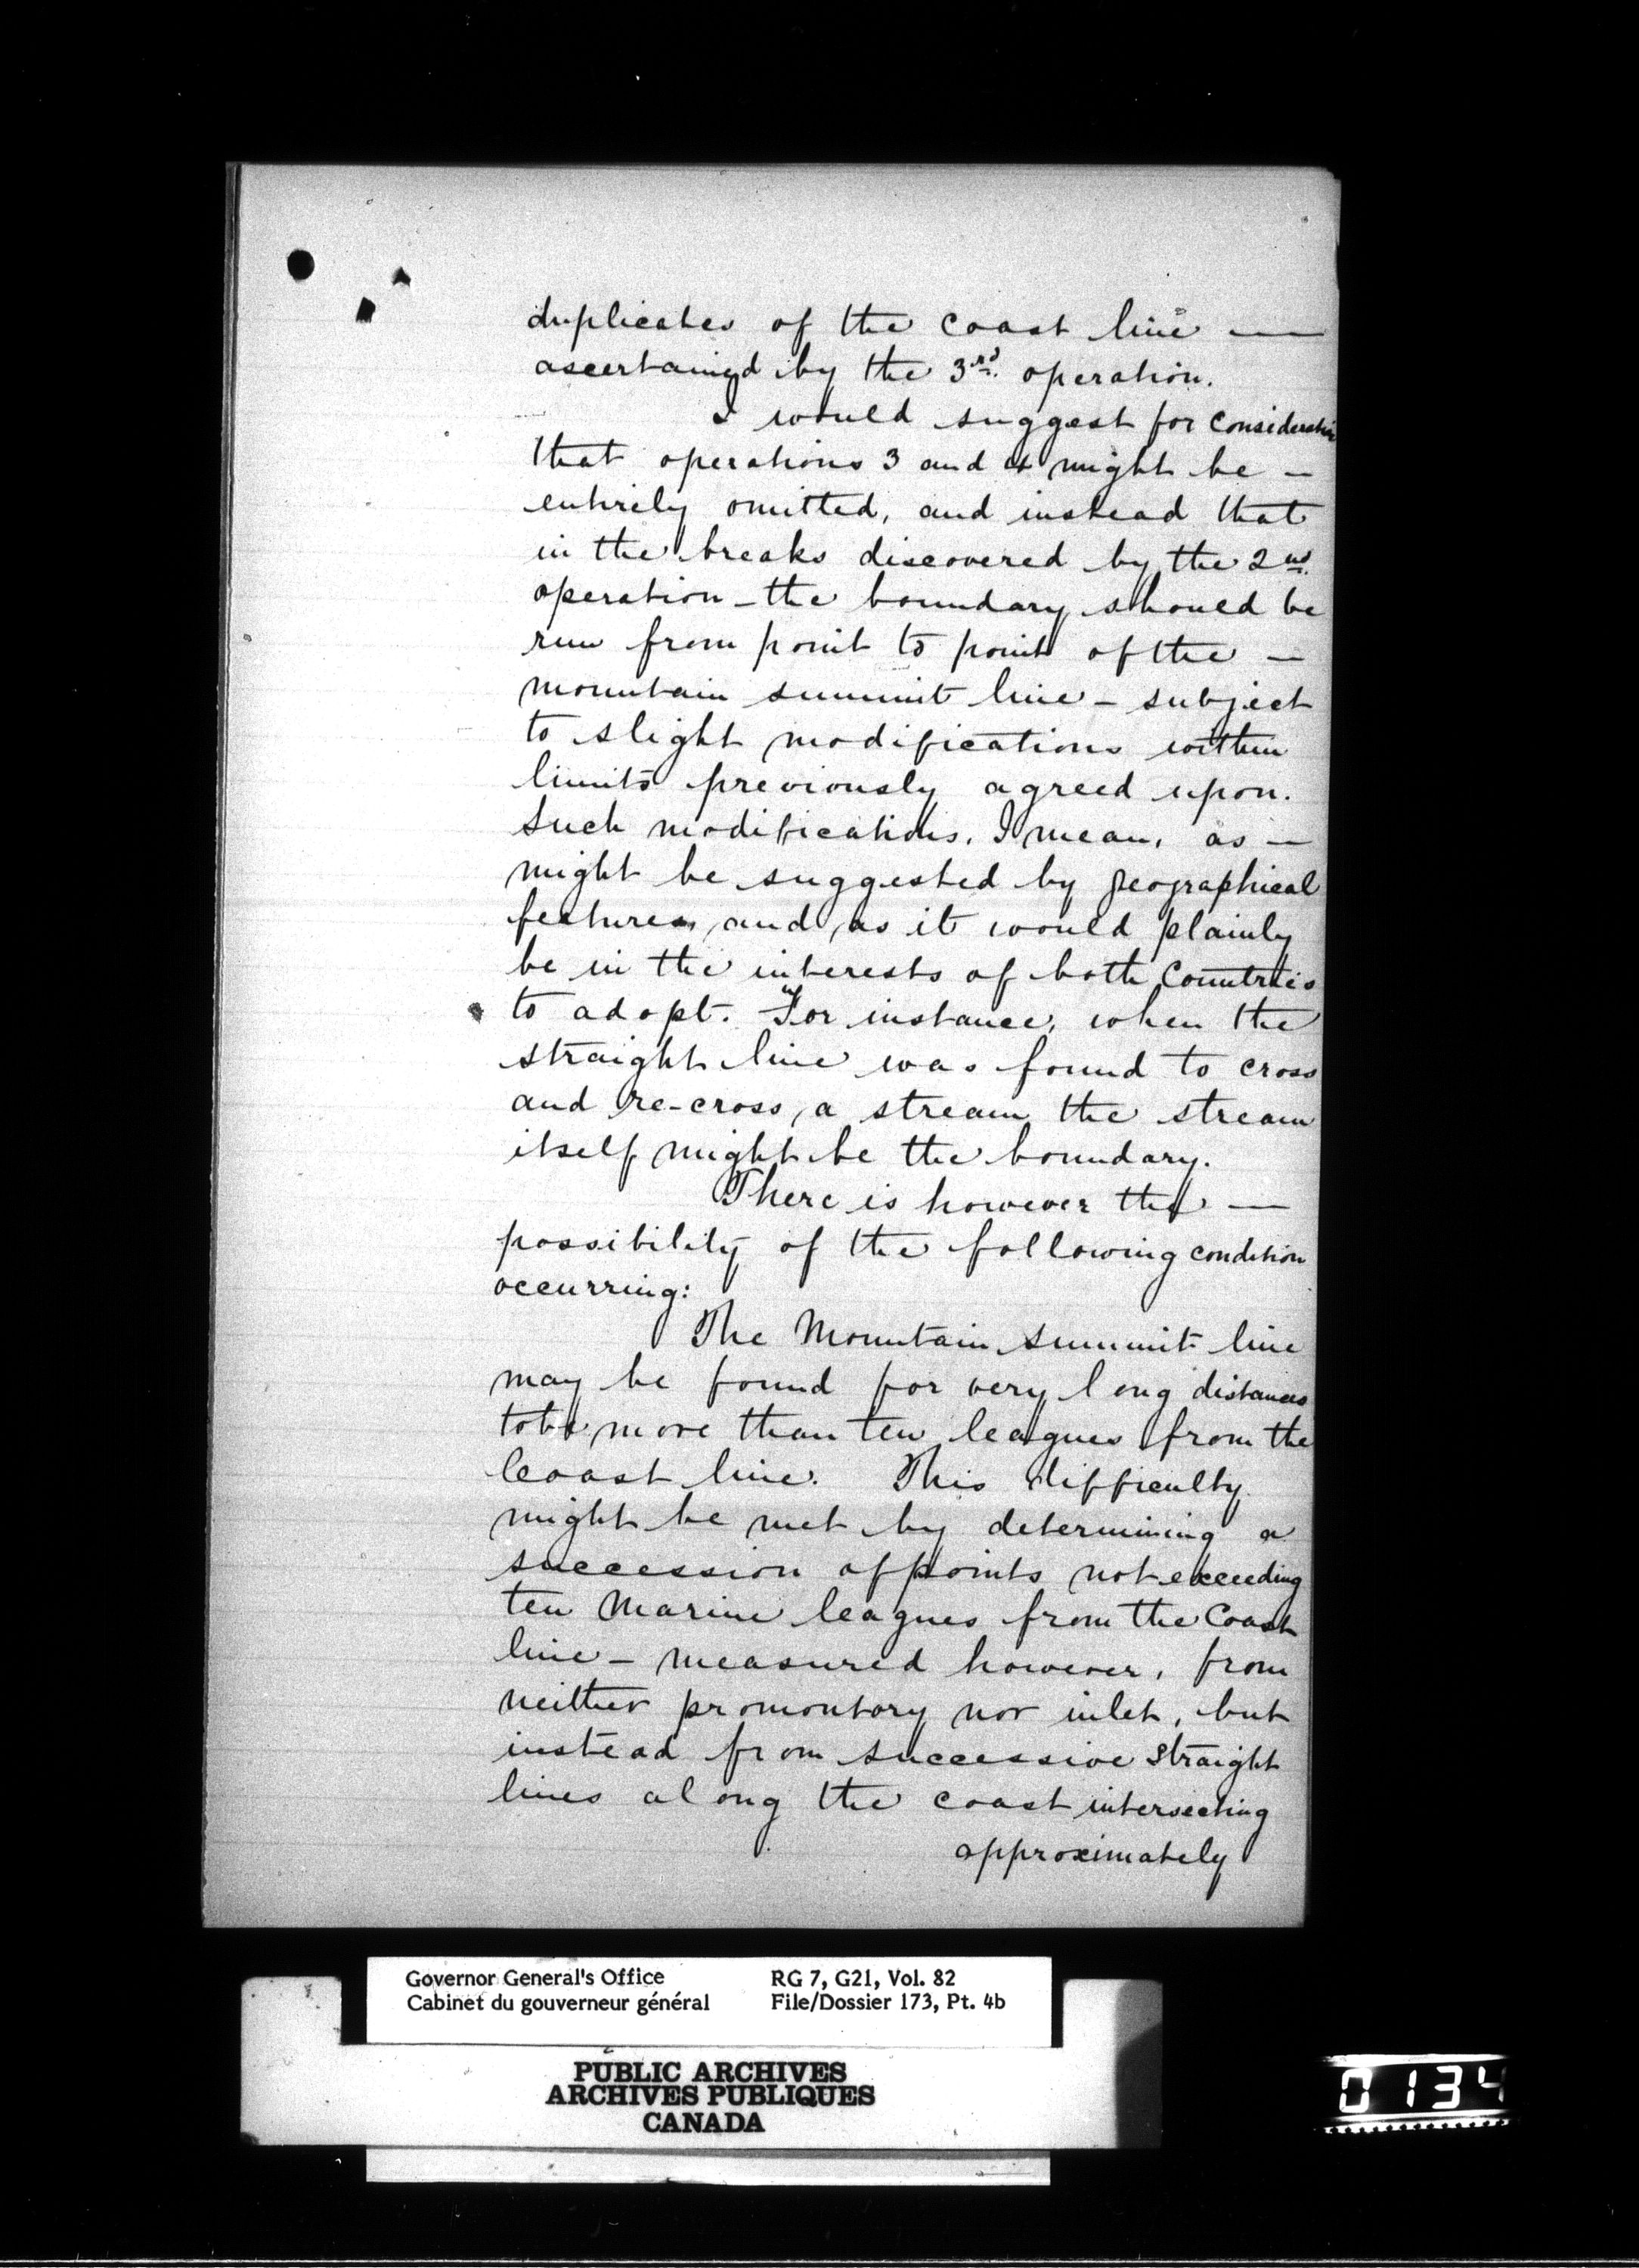 duplicates of the coast line —
ascertained by the 3rd. operation.
I would suggest for consideration
that operations 3 and 4 might be —
entirely omitted, and instead that
in the breaks discovered by the 2nd.
operation — the boundary should be
run from point to point of the —
mountain summit line — subject
to slight modifications within
limits previously agreed upon.
Such modifications, I mean, as —
might be suggested by geographical
features, and, as it would plainly
be in the interests of both Countries
to adopt. "For instance, when the
straight line was found to cross
and re-cross, a stream, the stream
itself might be the boundary.
There is however the —
possibility of the following condition
occurring:
The Mountain summit line
may be found for very long distances
to be more than ten leagues from the
Coast line. This difficulty
might be met by determining a
succession of points not exceeding
ten Marine leagues from the Coast
line — measured however, from
neither promontory nor inlet, but
instead from successive straight
lines along the coast intersecting
approximately
Governor General's Office RG 7, G21, Vol. 82
Cabinet du gouverneur général File/Dossier 173, Pt. 4b
PUBLIC ARCHIVES
ARCHIVES PUBLIQUES
CANADA
0134